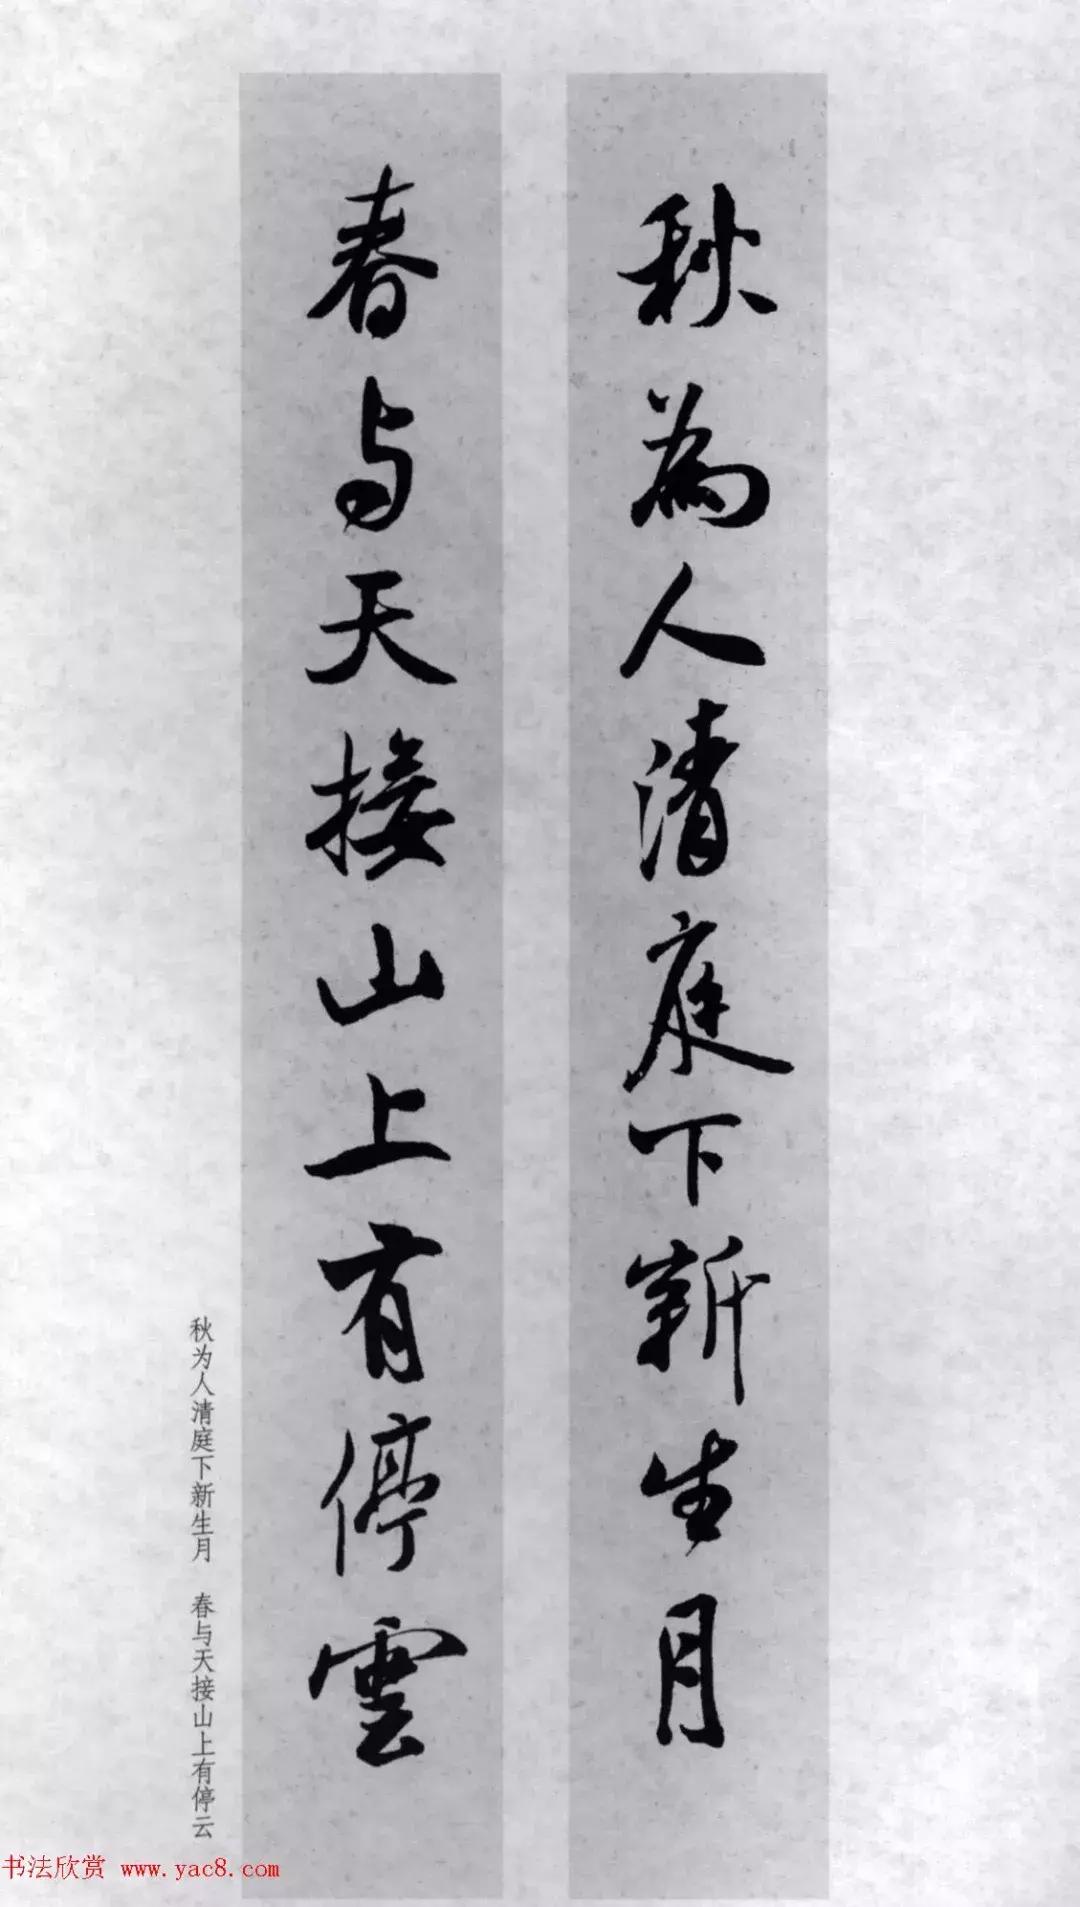 秋為人清庭下新生月
春与天接山上有停雲
秋为人清庭下新生月　春与天接山上有停云
书法欣赏 www.yac8.com